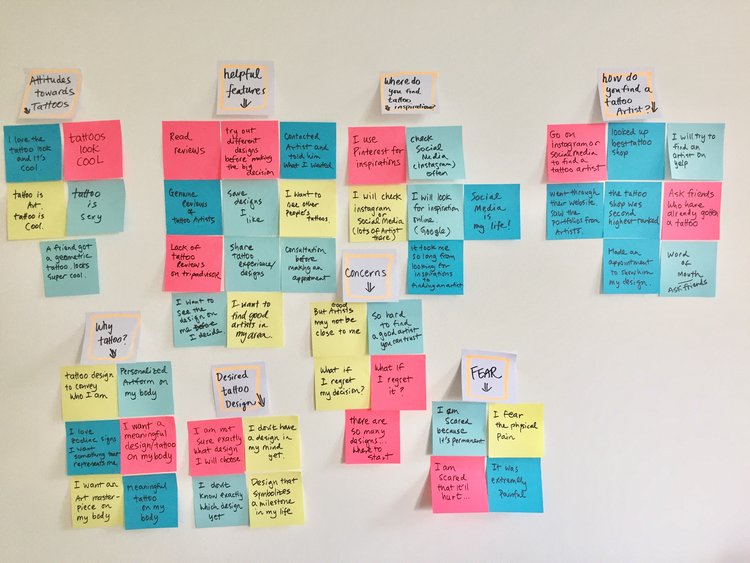 Attitudes
towards
Tattoos
I love the
tattoo look
and it's
cool.
tattoos
look
COOL
tattoo is
Art
tattoo is
Cool.
tattoo
is
sexy
A friend got
a geometric
tattoo. looks
super cool.
helpful
features
Read
reviews
try out
different
designs
before making
the big
decision
Contacted
Artist and
told him
what I wanted
Genuine
Reviews
of
tattoo Artists
save
designs
I like
I want to
see other
people's
tattoos
Lack of
tattoo
Reviews
on tripadvisor
Share
tattoo
experience/
designs
Consultation
before
making an
appointment
I want to
see the
design on
me before
I decide
I want to
find good
artists in
my area.
Where do
you find
tattoo
inspiration?
I use
Pinterest for
inspirations
check
Social
Media
(Instagram)
often
I will check
instagram
or
Social Media
(lots of Artist
there)
I will look
for inspiration
online
(Google)
Social
Media is
my life!
it took me
so long from
looking for
inspirations
to
finding an artist
how do
you find a
tattoo
Artist?
Go on
instagram or
Social media
to find a
tattoo artist
looked up
best tattoo
shop
I will try to
find an
artist on
yelp
went through
their website
saw the
portfolios from
Artists.
the tattoo
shop was
second
higher ranked
Ask friends
who have
already gotten
a tattoo
Made an
appointment
to show him
my design.
Word of
Mouth
Ask friends
Concerns
But good Artists
may not be
close to me
So hard
to find
a good artist
you can trust
What if
I regret
my decision?
What if
I regret
it?
there are
so many
designs...
where to
start
Why
tattoo?
tattoo design
to convey
Who I am
Personalized
Artform on
my body
I love
zodiac signs
I want
something that
represents me.
I want a
meaningful
design/tattoo
on my body
I want an
Art master-
piece on my
body
meaningful
tattoo
on my
body
Desired
tattoo
Design
I am not
sure exactly
what design
I will choose
I don't have
a design in
my mind
yet.
I don't
know exactly
which design
yet
Design that
symbolizes
a milestone
in my life
FEAR
I am
Scared
because
it's permanent
I fear
the physical
Pain
I am
scared
that it'll
hurt...
It was
extremely
Painful